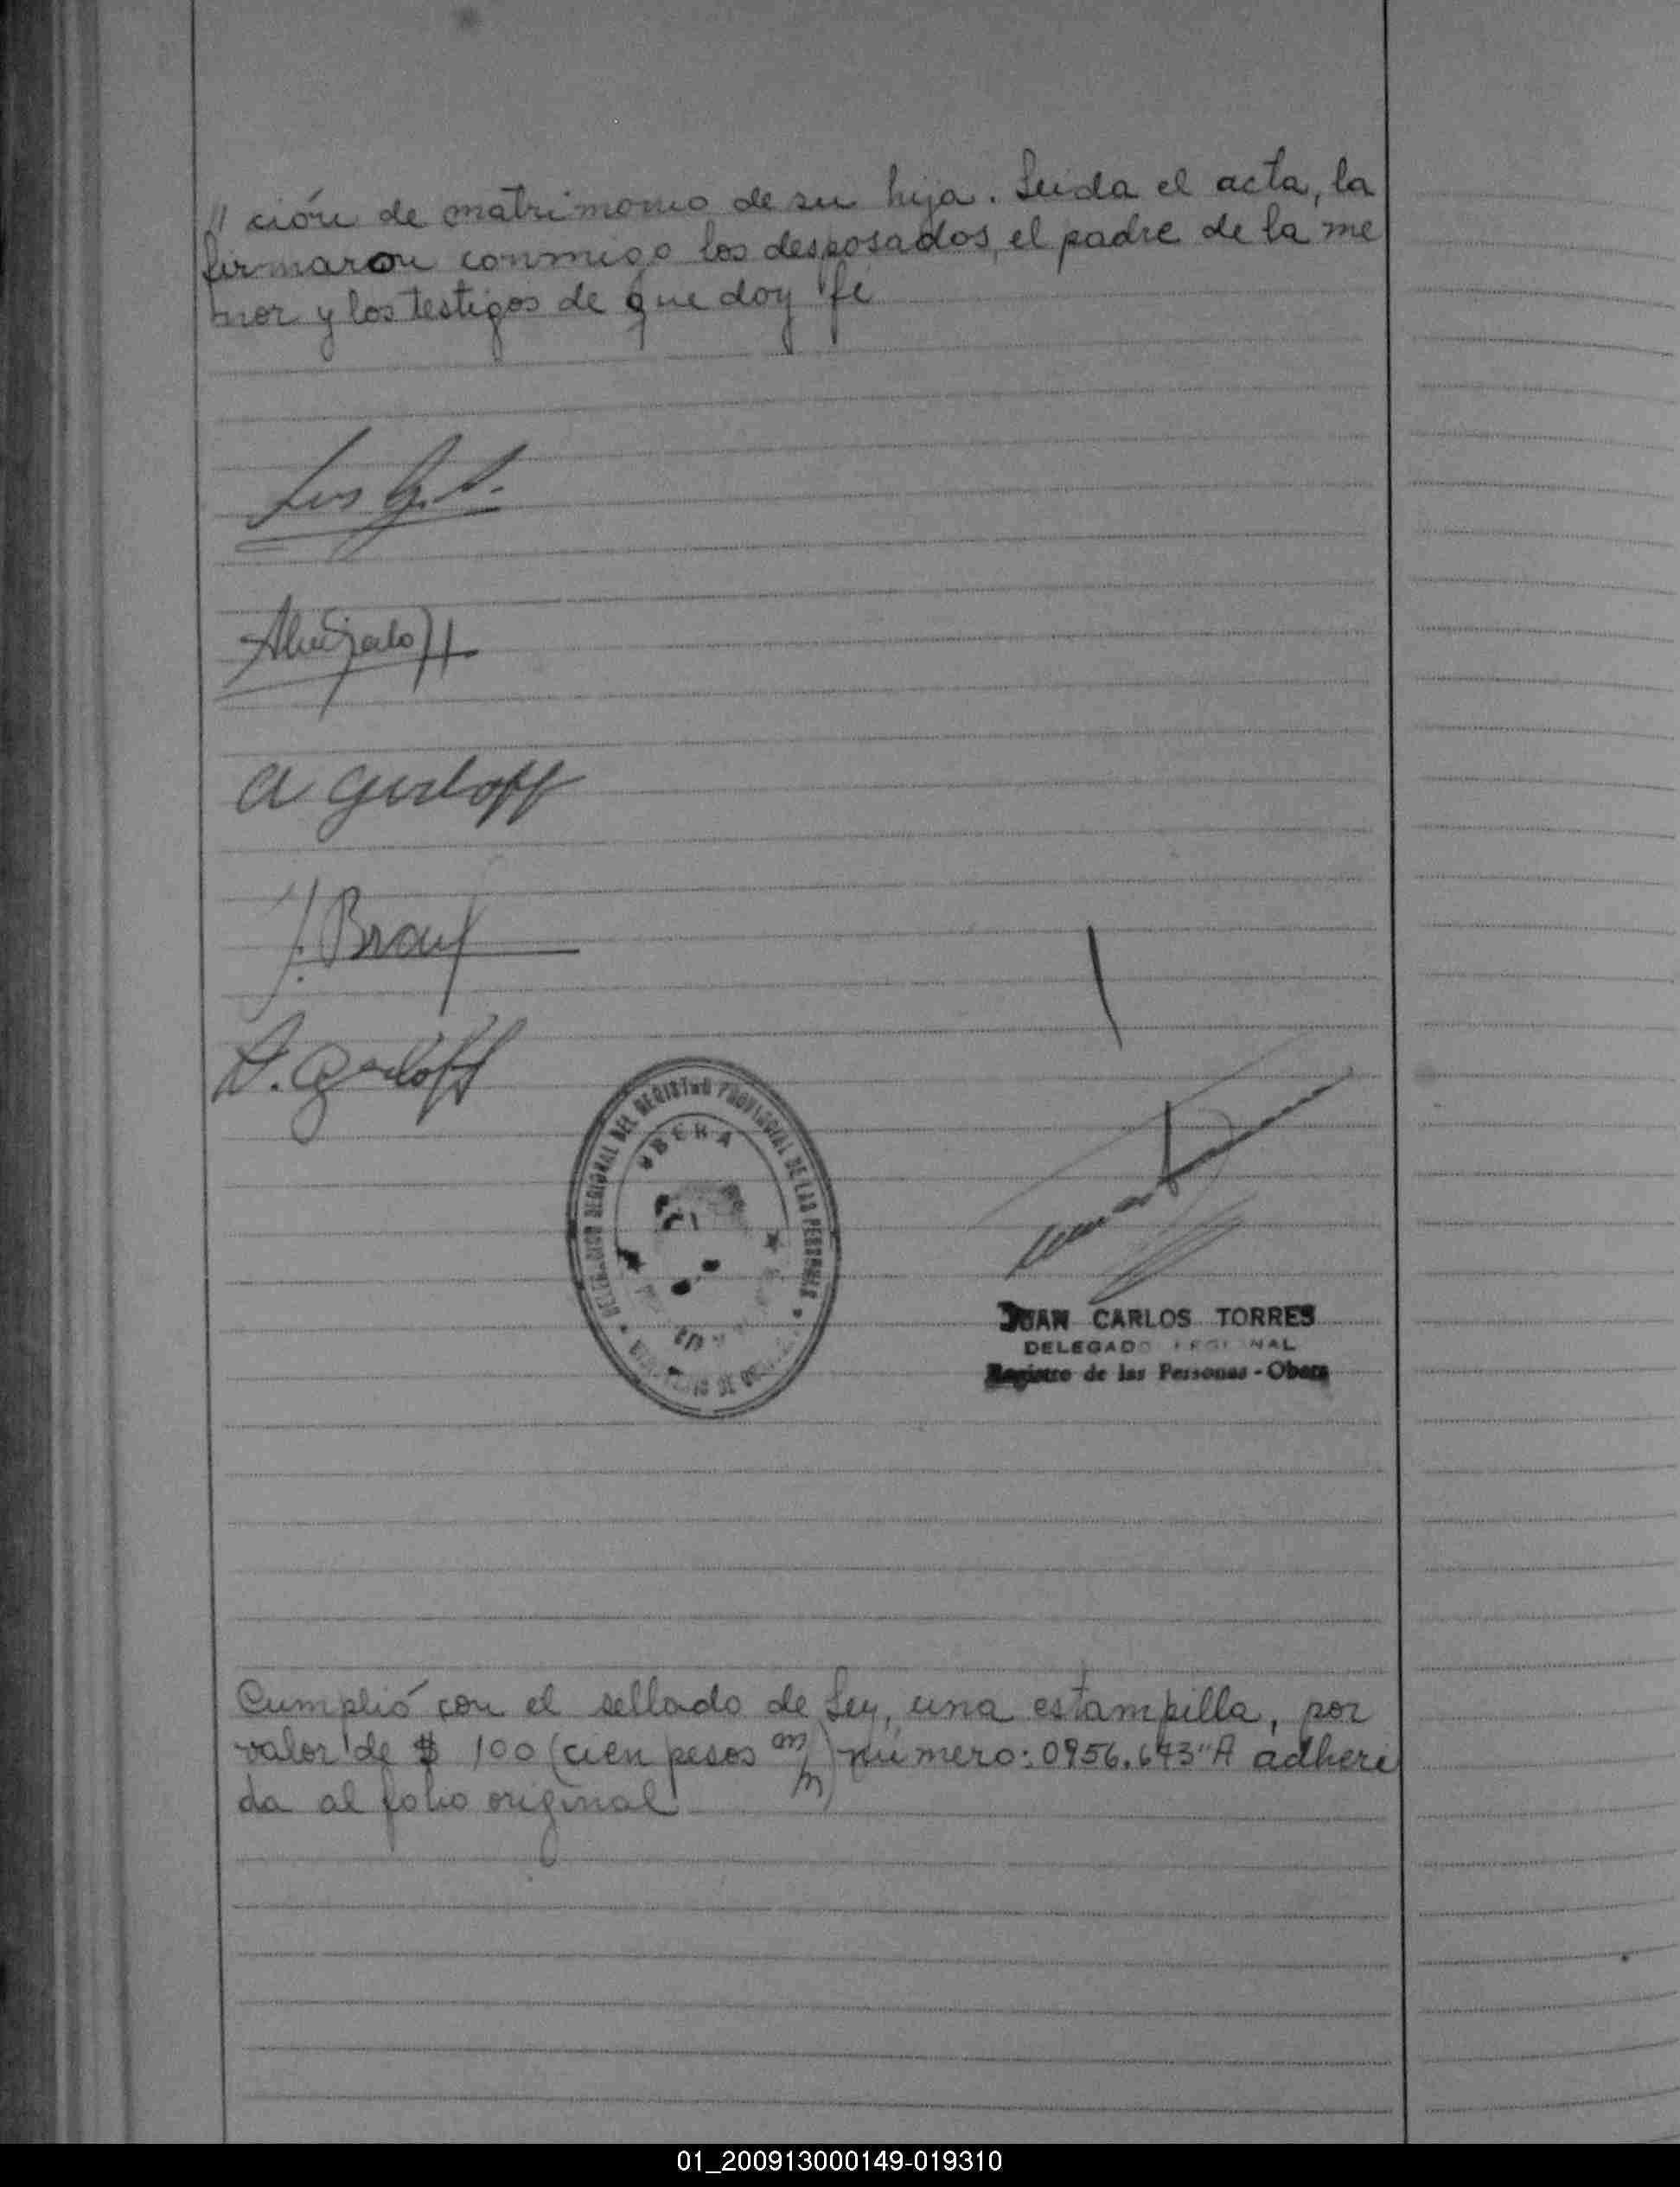 // ción de matrimonio de su hija. Leida el acta, la
firmaron conmigo los desposados, el padre de la me
nor y los testigos de que doy fé
A Gerloff
J. Brauf
A. Gerloff
DELEGACION REGIONAL DEL REGISTRO PROVINCIAL DE LAS PERSONAS
OBERA
JUAN CARLOS TORRES
DELEGADO REGIONAL
Registro de las Personas - Obera
Cumplió con el sellado de Ley, una estampilla, por
valor de $ 100 (cien pesos m/n) número: 0956.643"A adheri
da al folio original
01_200913000149-019310